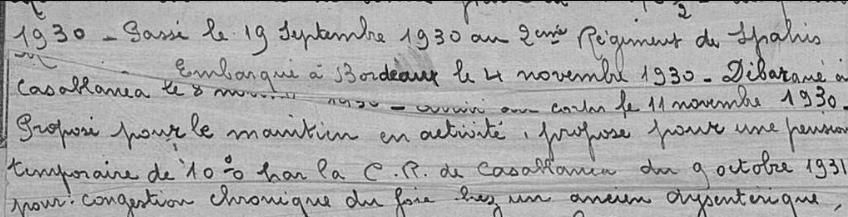 1930 - Passé le 19 Septembre 1930 au 2eme Régiment de Spahis
Embarqué à Bordeaux le 4 novembre 1930 - Débarqué à
Casablanca le 8 1930 - au corps le 11 novembre 1930.
Proposé pour le maintien en activité, propose pour une pension
temporaire de 10% par la C.R. de Casablanca du 9 octobre 1931
pour: congestion chronique du foie chez un ancien dysenterique,